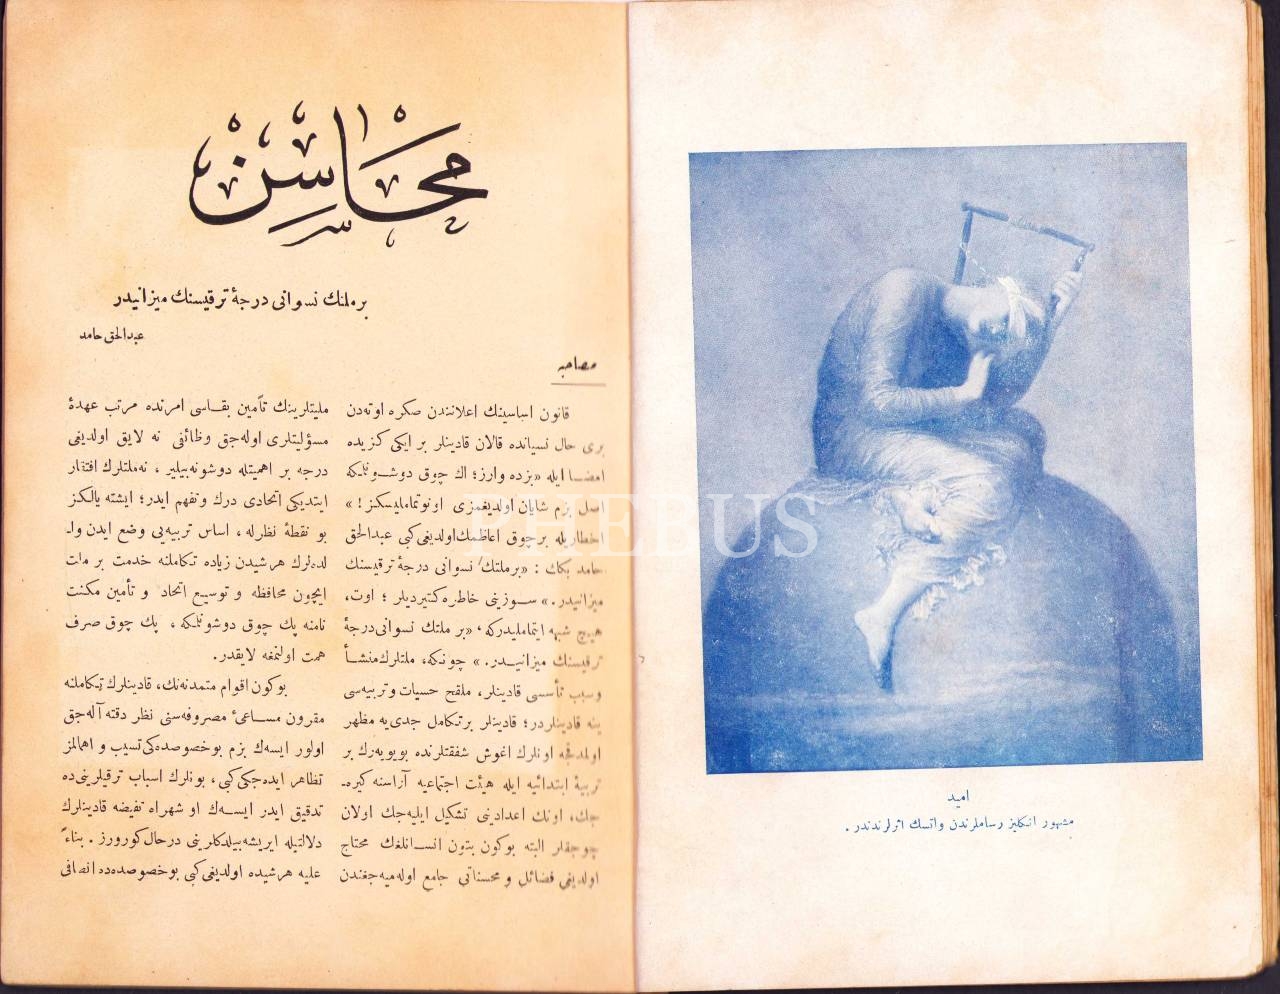 محاسن
بر ملتك نسوانی درجهٔ ترقیسنك میزانیدر
عبدالحق حامد
مصاحبه
قانون اساسینك اعلانندن صكره اوته‌دن
بری حال نسیانده قالان قادینلر بر ایكی كزیده
امضا ایله «بزده وارز؛ اك چوق دوشونلمكه
اصل بزم شایان اولدیغمزی اونوتمامالیسكز! »
اخطاریله برچوق اعاظمك اولدیغی كبی عبدالحق
حامد بكك : «بر ملتك نسوانی درجهٔ ترقیسنك
میزانیدر.» سوزینی خاطره كتیردیلر ؛ اوت،
هیچ شبهه ایتمامليدركه، «بر ملتك نسوانی درجهٔ
ترقیسنك میزانیدر. » چونكه، ملتلرك منشأ
وسبب تأسسی قادینلر، ملقح حسیات وتربیه‌سی
ینه قادینلردر؛ قادینلر بر تكامل جدی‌یه مظهر
اولمدقجه اونلرك اغوش شفقتلرنده بویویه‌رك بر
تربیهٔ ابتدائیه ایله هیئت اجتماعیه آراسنه كیره‌
جك، اونك اعدادینی تشكیل ایلیه‌جك اولان
چوجقلر البته بوكون بتون انسانلغك محتاج
اولدیغی فضائل و محسناتی جامع اوله‌میه‌جغندن
ملیتلرینك تأمین بقاسی امرنده مرتب عهدهٔ
مسؤلیتلری اوله‌جق وظائفی نه لایق اولدیغی
درجه بر اهمیتله دوشونه‌بیلیر ، نه‌ملتلرك افتقار
ایتدیكی اتحادی درك وتفهم ایدر؛ ایشته یالكز
بو نقطهٔ نظرله ، اساس تربیه‌یی وضع ایدن وا-
لده‌لرك هر شیدن زیاده تكاملنه خدمت بر ملت
ایچون محافظه و توسیع اتحاد و تأمین مكنت
نامنه پك چوق دوشونلمكه ، پك چوق صرف
همت اولنمغه لایقدر.
بوكون اقوام متمدنه‌نك، قادینلرك تكاملنه
مقرون مساعیٔ مصروفه‌سنی نظر دقته آله‌جق
اولور ایسه‌ك بزم بوخصوصده‌كی تسیب و اهمالمز
تظاهر ایده‌جكی كبی، بونلرك اسباب ترقیلرینی‌ده
تدقیق ایدر ایسه‌ك او شهراه تفیضه قادینلرك
دلالتیله ایریشه‌بیلدكلرینی درحال كورورز . بناءً
علیه هرشیده اولدیغی كبی بوخصوصده‌ده انصافی
امید
مشهور انكلیز رساملرندن واتسك اثرلرندندر .
PHEBUS